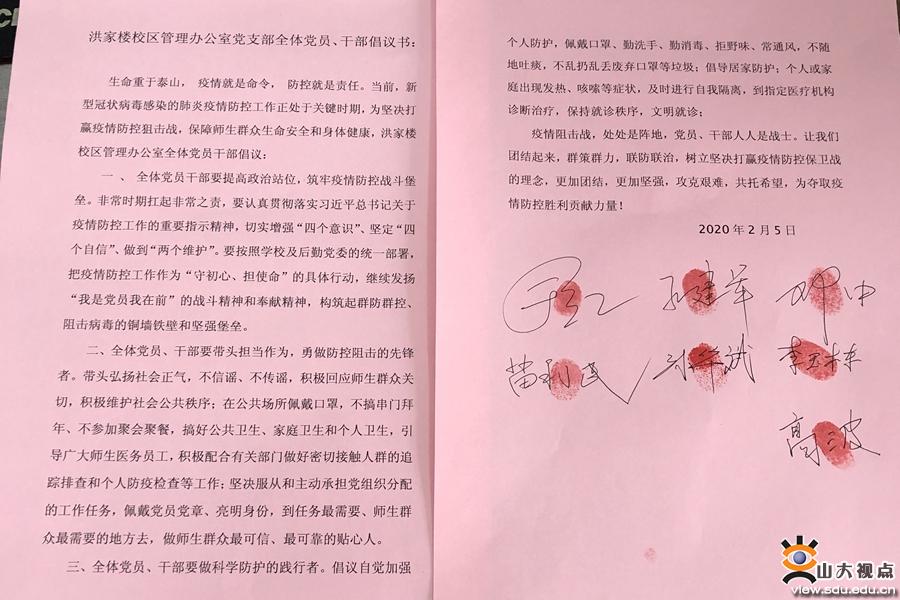 洪家楼校区管理办公室党支部全体党员、干部倡议书：
生命重于泰山，疫情就是命令，防控就是责任。当前，新
型冠状病毒感染的肺炎疫情防控工作正处于关键时期，为坚决打
赢疫情防控狙击战，保障师生群众生命安全和身体健康，洪家楼
校区管理办公室全体党员干部倡议：
一、全体党员干部要提高政治站位，筑牢疫情防控战斗堡
垒。非常时期扛起非常之责，要认真贯彻落实习近平总书记关于
疫情防控工作的重要指示精神，切实增强“四个意识”、坚定“四
个自信”、做到“两个维护”。要按照学校及后勤党委的统一部署，
把疫情防控工作作为“守初心、担使命”的具体行动，继续发扬
“我是党员我在前”的战斗精神和奉献精神，构筑起群防群控、
阻击病毒的铜墙铁壁和坚强堡垒。
二、全体党员、干部要带头担当作为，勇做防控阻击的先锋
者。带头弘扬社会正气，不信谣、不传谣，积极回应师生群众关
切，积极维护社会公共秩序；在公共场所佩戴口罩，不搞串门拜
年、不参加聚会聚餐，搞好公共卫生、家庭卫生和个人卫生，引
导广大师生医务员工，积极配合有关部门做好密切接触人群的追
踪排查和个人防疫检查等工作；坚决服从和主动承担党组织分配
的工作任务，佩戴党员党章、亮明身份，到任务最需要、师生群
众最需要的地方去，做师生群众最可信、最可靠的贴心人。
三、全体党员、干部要做科学防护的践行者。倡议自觉加强
个人防护，佩戴口罩、勤洗手、勤消毒、拒野味、常通风，不随
地吐痰，不乱扔乱丢废弃口罩等垃圾；倡导居家防护；个人或家
庭出现发热、咳嗽等症状，及时进行自我隔离，到指定医疗机构
诊断治疗，保持就诊秩序，文明就诊；
疫情阻击战，处处是阵地，党员、干部人人是战士。让我们
团结起来，群策群力，联防联治，树立坚决打赢疫情防控保卫战
的理念，更加团结，更加坚强，攻克艰难，共托希望，为夺取疫
情防控胜利贡献力量！
2020年2月5日
孙建军
苗利民
高波
山大视点
view.sdu.edu.cn